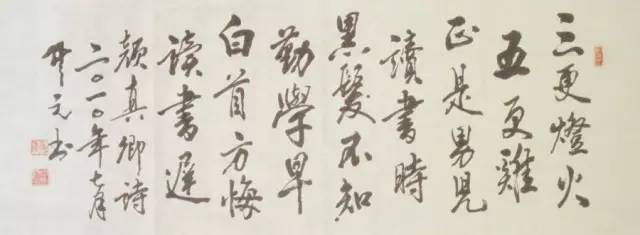 三更燈火
五更雞
正是男兒
讀書時
黑髮不知
勤學早
白首方悔
读書遲
顏真卿詩
二〇一〇年七月
元书